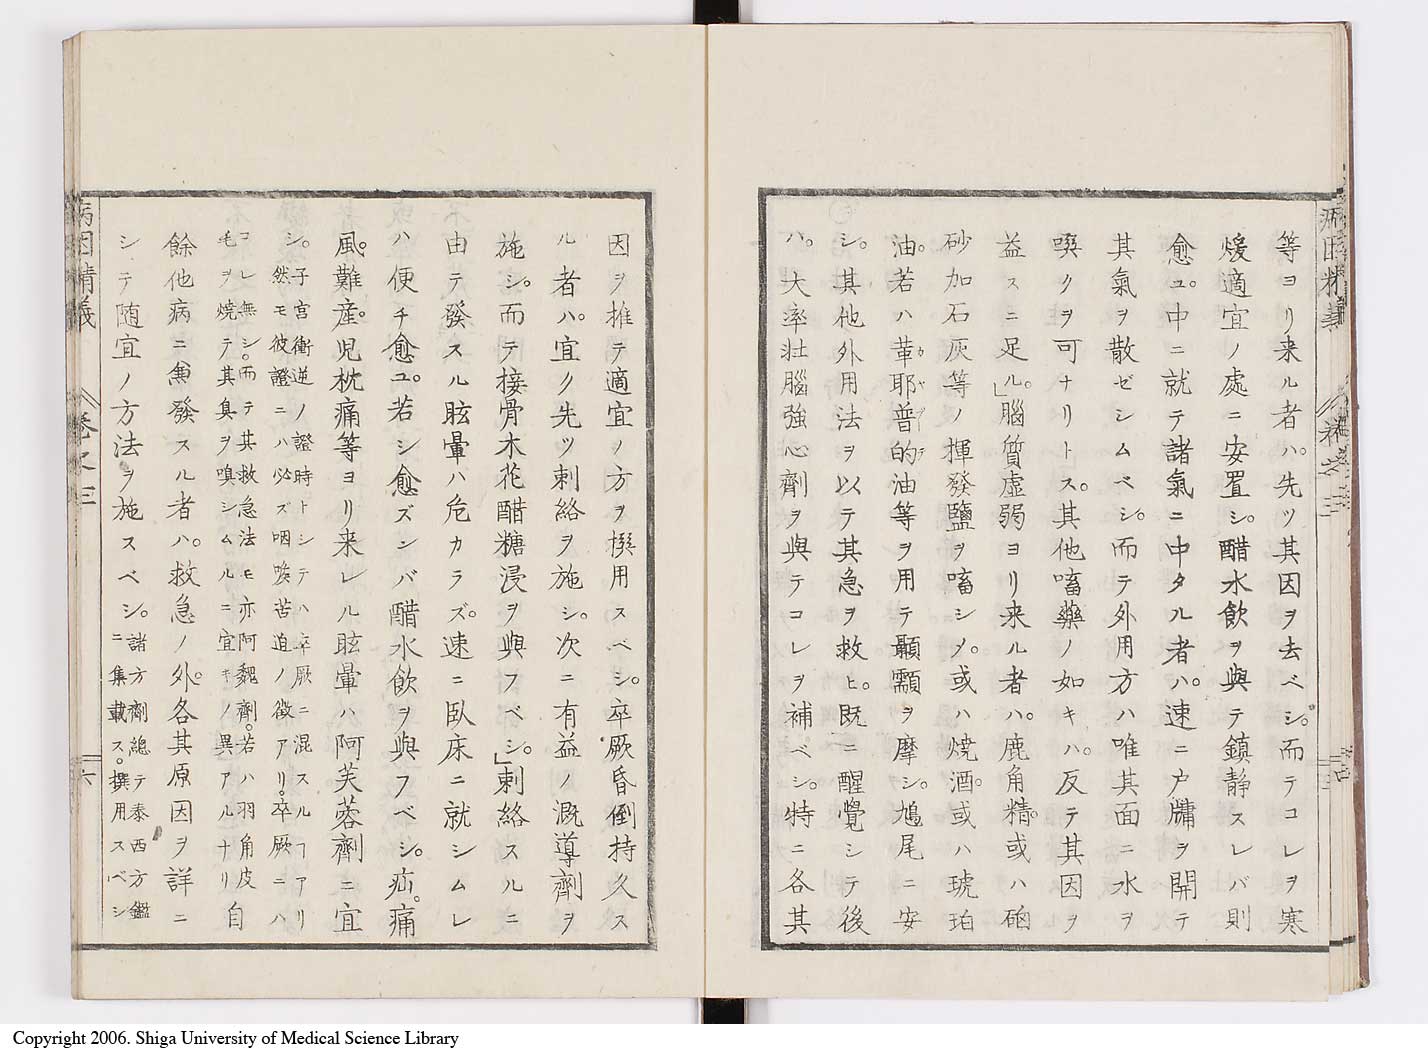 等ヨリ来ル者ハ。先ツ其因ヲ去ベシ。而テコレヲ寒
煖適宜ノ處ニ安置シ。醋水飲ヲ與テ鎮静スレバ則
愈ユ。中ニ就テ諸氣ニ中タル者ハ。速ニ戸牗ヲ開テ
其氣ヲ散ゼシムベシ。而テ外用方ハ唯其面ニ水ヲ
噀クヲ可ナリトス。其他嗅藥ノ如キハ。反テ其因ヲ
益スニ足ル。」腦質虚弱ヨリ来ル者ハ。鹿角精。或ハ硇
砂加石灰等ノ揮發鹽ヲ嗅シメ。或ハ焼酒。或ハ琥珀
油。若ハ革耶普的油等ヲ用テ顳顬ヲ摩シ。鳩尾ニ安
シ。其他外用法ヲ以テ其急ヲ救ヒ。既ニ醒覺シテ後
ハ。大率壮腦強心劑ヲ與テコレヲ補ベシ。特ニ各其
因ヲ推テ適宜ノ方ヲ撰用スベシ。卒厥昏倒持久ス
ル者ハ。宜ク先ツ刺絡ヲ施シ。次ニ有益ノ漑導劑ヲ
施シ。而テ接骨木花醋糖浸ヲ與フベシ。」刺絡スルニ
由テ發スル眩暈ハ危カラズ。速ニ臥床ニ就シムレ
ハ便チ愈ユ。若シ愈ズンバ醋水飲ヲ與フベシ。疝。痛
風。難産。児枕痛等ヨリ来レル眩暈ハ阿芙蓉劑ニ宜
シ。子宮衝逆ノ證時トシテハ卒厥ニ混スルヿアリ
然モ彼證ニハ必ズ咽喉苦迫ノ徴アリ。卒厥ニハ
コレ無シ。而テ其救急法モ亦阿魏劑。若ハ羽角皮
毛ヲ焼テ其臭ヲ嗅シムルニ宜キノ異アルナリ 自
餘他病ニ兼發スル者ハ。救急ノ外。各其原因ヲ詳ニ
シテ随宜ノ方法ヲ施スベシ。諸方劑總テ泰西方鑑
ニ集載ス。撰用スベシ
病因精義
巻之三
六
Copyright 2006. Shiga University of Medical Science Library